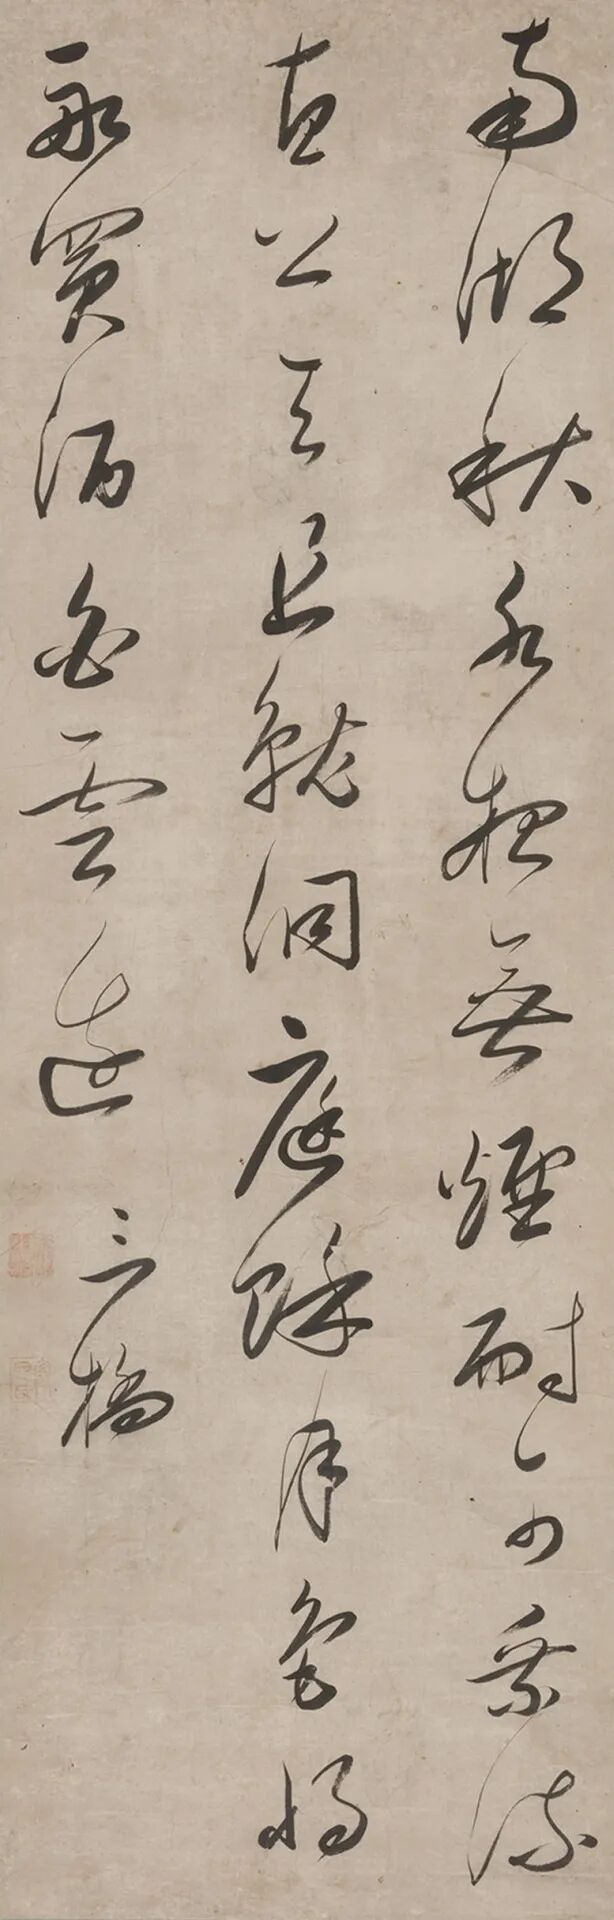 南湖秋水夜無煙耐可乘流
直上天且就洞庭賒月色將
船買酒白雲邊 三橋